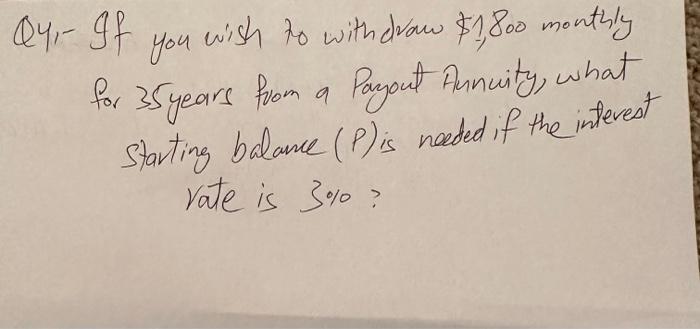 Q4,- If you wish to withdraw $1,800 monthly
for 35 years from a Payout Annuity, what
starting balance (P) is needed if the interest
rate is 3% ?